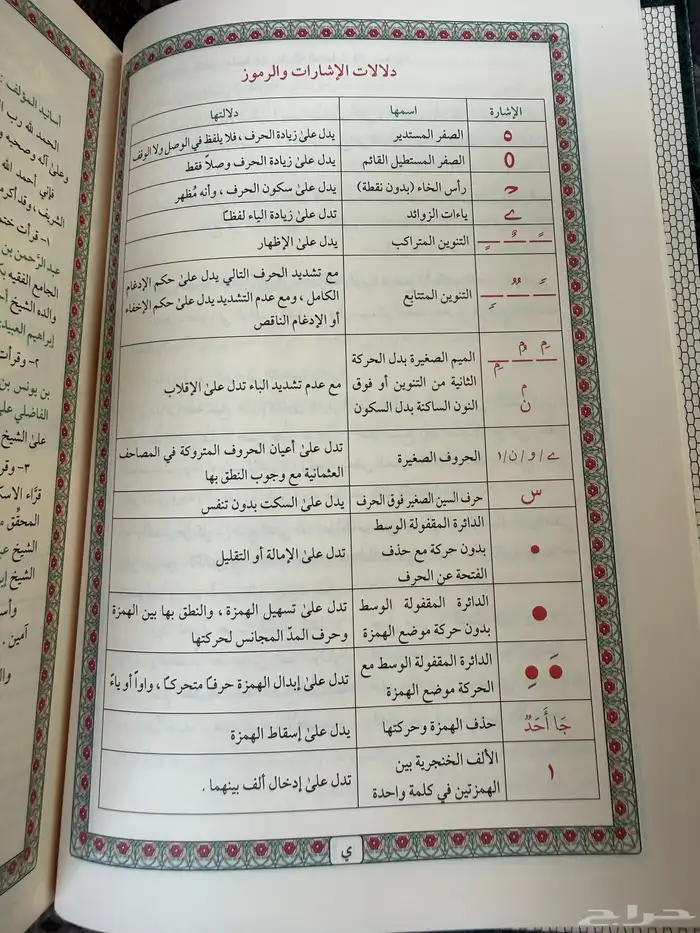 دلالات الإشارات والرموز
الإشارة اسمها دلالتها
ه الصفر المستدير يدل على زيادة الحرف ، فلا يلفظ في الوصل ولا الوقف
0 الصفر المستطيل القائم يدل على زيادة الحرف وصلاً فقط
رأس الخاء (بدون نقطة) يدل على سكون الحرف ، وأنه مُظهر
ے ياءات الزوائد تدل على زيادة الياء لفظًا
التنوين المتراكب يدل على الإظهار
التنوين المتتابع
مع تشديد الحرف التالي يدل على حكم الإدغام
الكامل ، ومع عدم التشديد يدل على حكم الإخفاء
أو الإدغام الناقص
الميم الصغيرة بدل الحركة
الثانية من التنوين أو فوق
النون الساكنة بدل السكون
مع عدم تشديد الباء تدل على الإقلاب
ے/و/ن/١ الحروف الصغيرة
تدل على أعيان الحروف المتروكة في المصاحف
العثمانية مع وجوب النطق بها
س حرف السين الصغير فوق الحرف يدل على السكت بدون تنفس
الدائرة المقفولة الوسط
بدون حركة مع حذف
الفتحة عن الحرف
تدل على الإمالة أو التقليل
الدائرة المقفولة الوسط
بدون حركة موضع الهمزة
تدل على تسهيل الهمزة ، والنطق بها بين الهمزة
وحرف المدّ المجانس لحركتها
الدائرة المقفولة الوسط مع
الحركة موضع الهمزة
تدل على إبدال الهمزة حرفًا متحركًا ، واواً أو ياءً
جَا أَحَدٌ حذف الهمزة وحركتها يدل على إسقاط الهمزة
١ الألف الخنجرية بين
الهمزتين في كلمة واحدة
تدل على إدخال ألف بينهما .
ي
أسانيد المؤلف :
الحمد لله رب
وعلى آله وصحبه و
فإني أحمد الله
الشريف ، وقد أكرم
١- قرأت ختم
عبد الرَّحمن بن
الجامع الفقيه
والده الشيخ أح
إبراهيم العبيد
٢- وقرأت
بن يونس بن
الفاضلي علي
على الشيخ
٣- وقر
قرَّاء الاسك
المحقِّق م
الشيخ عب
الشيخ إبر
وأس
آمين .
وال
حراج